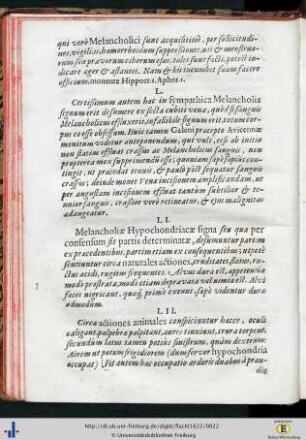 qui verò Melancholici sunt acquisititiè, per sollicitudi-
nes, vigilias, hæmorrhoidum suppressiones, uti & menstruo-
rum seu pravarum ciborum esu, tales sunt facti, potest in-
dicare æger & astantes. Nam & his incumbit suum facere
officium, monente Hippocr. 1. Aphor. 1.
L.
Certissimum autem hac in sympathica Melancholia
signum erit desumere ex secta cubiti vena, quòd si sanguis
Melancholicus effluxerit, infallibile signum erit totum cor-
pus eo esse obsessum. Huic tamen Galeni præcepto Avicennæ
monitum videtur anteponendum, qui vult, etsi ab initio
non statim effluat crassus ac Melancholicus sanguis, non
propterea mox supprimendum esse, quoniam sæpè sæpius con-
tingit, ut præcedat tenuis, & paulò pòst sequatur sanguis
crassus; deinde monet venæ incisionem amplificandam, ut
per angustam incisionem effluat tantùm subtilior & te-
nuior sanguis, crassior verò retineatur, & ejus malignitas
adaugeatur.
LI.
Melancholiæ Hypochondriacæ signa seu quæ per
consensum fit partis determinatæ, desumuntur partim
ex præcedentibus, partim etiam ex consequentibus: ut potè
sentiuntur circa naturales actiones, cruditates, flatus,
ructus acidi, rugitus frequentes. Alvus dura est, appetentia
modò prostrata, modò etiam depravata vel nimia est. Alvi
fæces nigricant, quæq; primò exeunt, sæpè videntur dura
admodum.
LII.
Circa actiones animales conspiciuntur hæc, oculi
caligant, palpebræ palpitant, aures tinniunt, crura torpent,
secundùm latus tamen potiùs sinistrum, quàm dextrum:
Aërem ut potum frigidiorem (dum fervor hypochondria
occupat) Fit autem hæc occupatio ardoris duabus à prandio
http://dl.ub.uni-freiburg.de/diglit/flacht1622/0022
© Universitätsbibliothek Freiburg